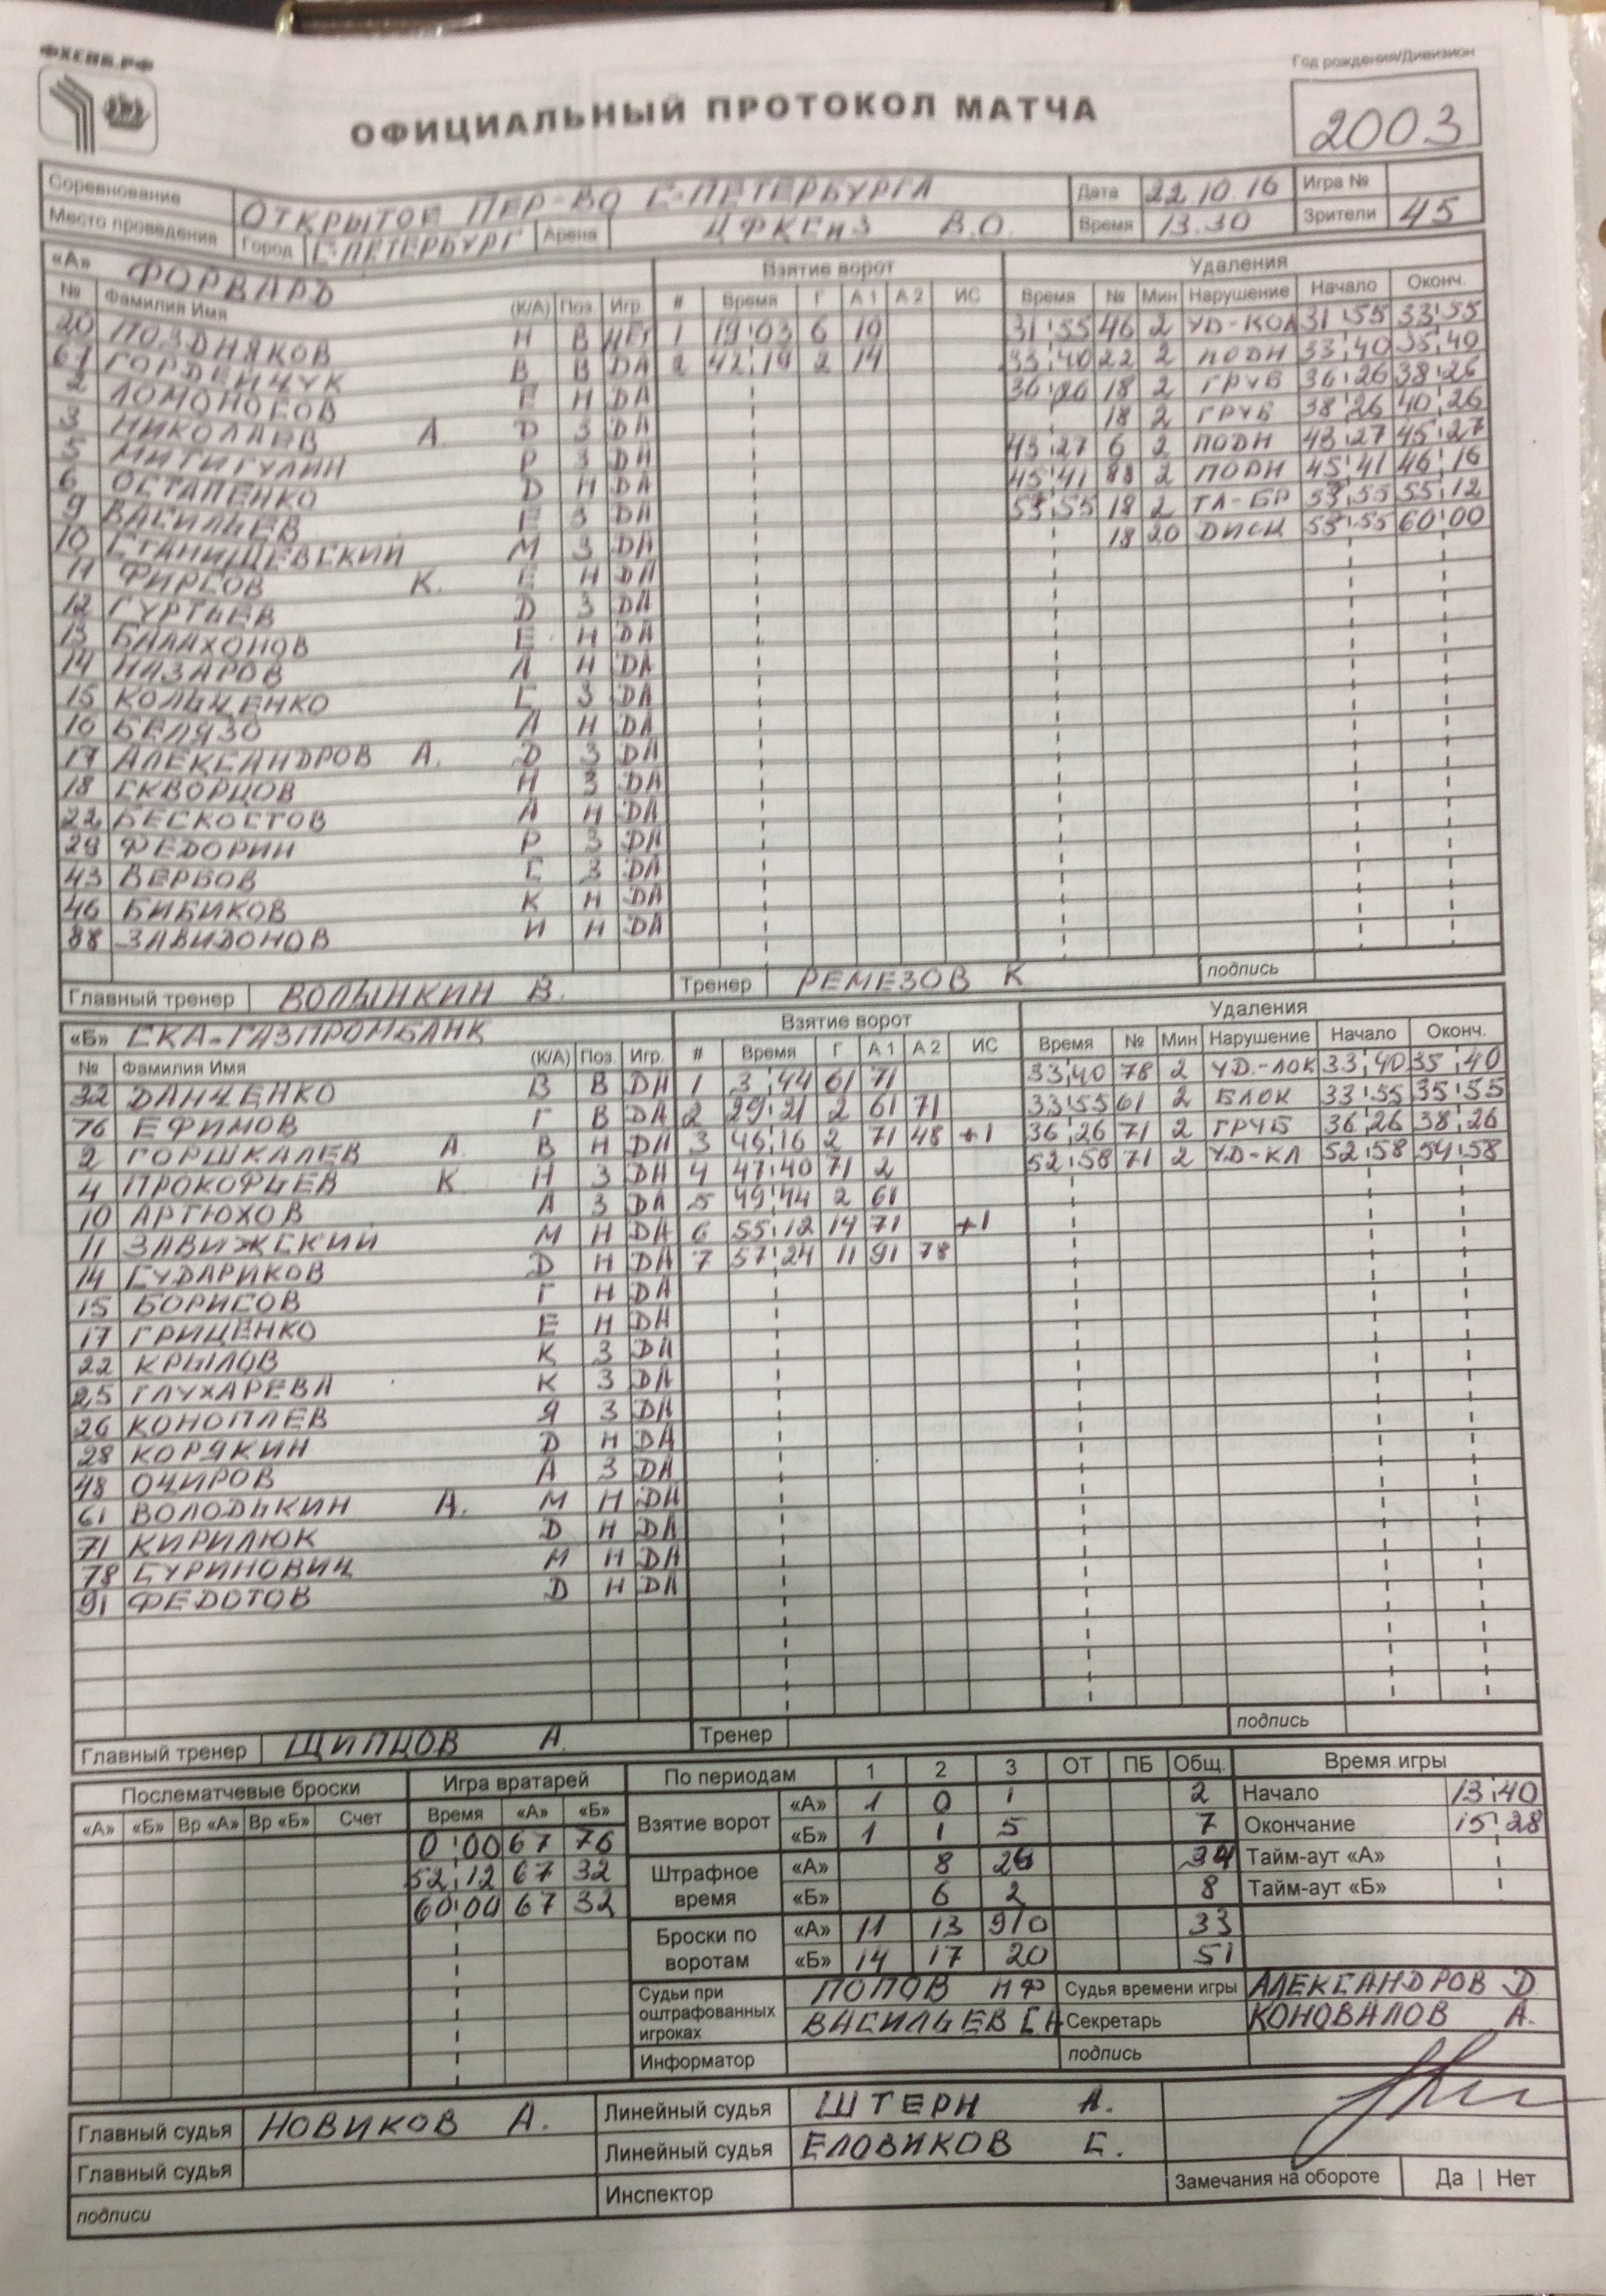 ФХСПБ.РФ
Год рождения/Дивизион
ОФИЦИАЛЬНЫЙ ПРОТОКОЛ МАТЧА
2003
Соревнование ОТКРЫТОЕ ПЕР-ВО С-ПЕТЕРБУРГА Дата 22.10.16 Игра №
Место проведения Город С-ПЕТЕРБУРГ Арена ЦФКСиЗ В.О. Время 13.30 Зрители 45
«А» ФОРВАРД Взятие ворот Удаления
№ Фамилия Имя (К/А) Поз. Игр # Время Г А 1 А 2 ИС Время № Мин Нарушение Начало Оконч.
20 ПОЗДНЯКОВ Н В НЕТ 1 19:03 6 10 31:55 46 2 УД-КОЛ 31:55 33:55
67 ГОРДЕЙЧУК В В DA 2 42:19 2 14 33:40 22 2 ПОДН 33:40 35:40
2 ЛОМОНОСОВ Е Н DA 36:26 18 2 ГРУБ 36:26 38:26
3 НИКОЛАЕВ А D З DA 18 2 ГРУБ 38:26 40:26
5 МИТИГУЛИН Р З DA 43:27 6 2 ПОДН 43:27 45:27
6 ОСТАПЕНКО D Н DA 45:41 88 2 ПОДН 45:41 46:16
9 ВАСИЛЬЕВ Е З DA 53:55 18 2 ТЛ-БР 53:55 55:12
10 СТАНИШЕВСКИЙ М З DA 18 20 DИСЦ 53:55 60:00
11 ФИРСОВ К. Е Н DA
12 ГУРТЬЕВ D З DA
13 БАЛАХОНОВ Е Н DA
14 НАЗАРОВ А Н DA
15 КОЛЬЦЕНКО С З DA
16 БЕЛЯЗО А Н DA
17 АЛЕКСАНDРОВ А. D З DA
18 СКВОРЦОВ Н З DA
22 БЕСКОСТОВ А Н DA
29 ФЕDОРИН Р З DA
43 ВЕРБОВ С З DA
46 БИБИКОВ К Н DA
88 ЗАВИDОНОВ И Н DA
Главный тренер ВОЛЫНКИН В. Тренер РЕМЕЗОВ К подпись
«Б» СКА-ГАЗПРОМБАНК Взятие ворот Удаления
№ Фамилия Имя (К/А) Поз. Игр. # Время Г А 1 А 2 ИС Время № Мин Нарушение Начало Оконч.
32 DАНЧЕНКО В В DA 1 3:44 61 71 33:40 78 2 УD.-ЛОК 33:40 35:40
76 ЕФИМОВ Г В DA 2 29:21 2 61 71 33:55 61 2 БЛОК 33:55 35:55
2 ГОРШКАЛЕВ А. В Н DA 3 46:16 2 71 48 +1 36:26 71 2 ГРУБ 36:26 38:26
4 ПРОКОФЬЕВ К Н З DA 4 47:40 71 2 52:58 71 2 УD-КЛ 52:58 54:58
10 АРТЮХОВ А З DA 5 49:44 2 61
11 ЗАВИЖСКИЙ М Н DA 6 55:12 14 71 +1
14 СУDАРИКОВ D Н DA 7 57:24 11 91 78
15 БОРИСОВ Г Н DA
17 ГРИЦЕНКО Е Н DA
22 КРЫЛОВ К З DA
25 ГЛУХАРЕВА К З DA
26 КОНОПЛЕВ Я З DA
28 КОРЯКИН D Н DA
48 ОЧИРОВ А З DA
61 ВОЛОDЬКИН А. М Н DA
71 КИРИЛЮК D Н DA
78 БУРИНОВИЧ М Н DA
91 ФЕDОТОВ D Н DA
Главный тренер ЩИПЦОВ А. Тренер подпись
Послематчевые броски Игра вратарей По периодам 1 2 3 ОТ ПБ Общ. Время игры
«А» «Б» Вр «А» Вр «Б» Счет Время «А» «Б» Взятие ворот «А» 1 0 1 2 Начало 13:40
0:00 67 76 «Б» 1 1 5 7 Окончание 15:28
52:12 67 32 Штрафное время «А» 8 26 34 Тайм-аут «А»
60:00 67 32 «Б» 6 2 8 Тайм-аут «Б»
Броски по воротам «А» 11 13 9/0 33
«Б» 14 17 20 51
Судьи при оштрафованных игроках ПОПОВ НФ Судья времени игры АЛЕКСАНDРОВ D
ВАСИЛЬЕВ СА Секретарь КОНОВАЛОВ А.
Информатор подпись
Главный судья НОВИКОВ А. Линейный судья ШТЕРН А.
Главный судья Линейный судья ЕЛОВИКОВ С.
подписи Инспектор Замечания на обороте Да | Нет